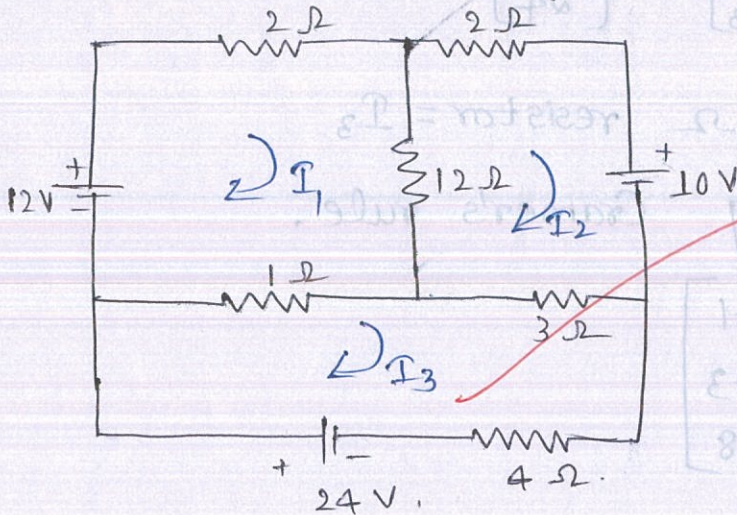 2 Ω 2 Ω
12V + - I₁ 12 Ω I₂ + 10 V
1 Ω 3 Ω
I₃
+ - 4 Ω.
24 V.